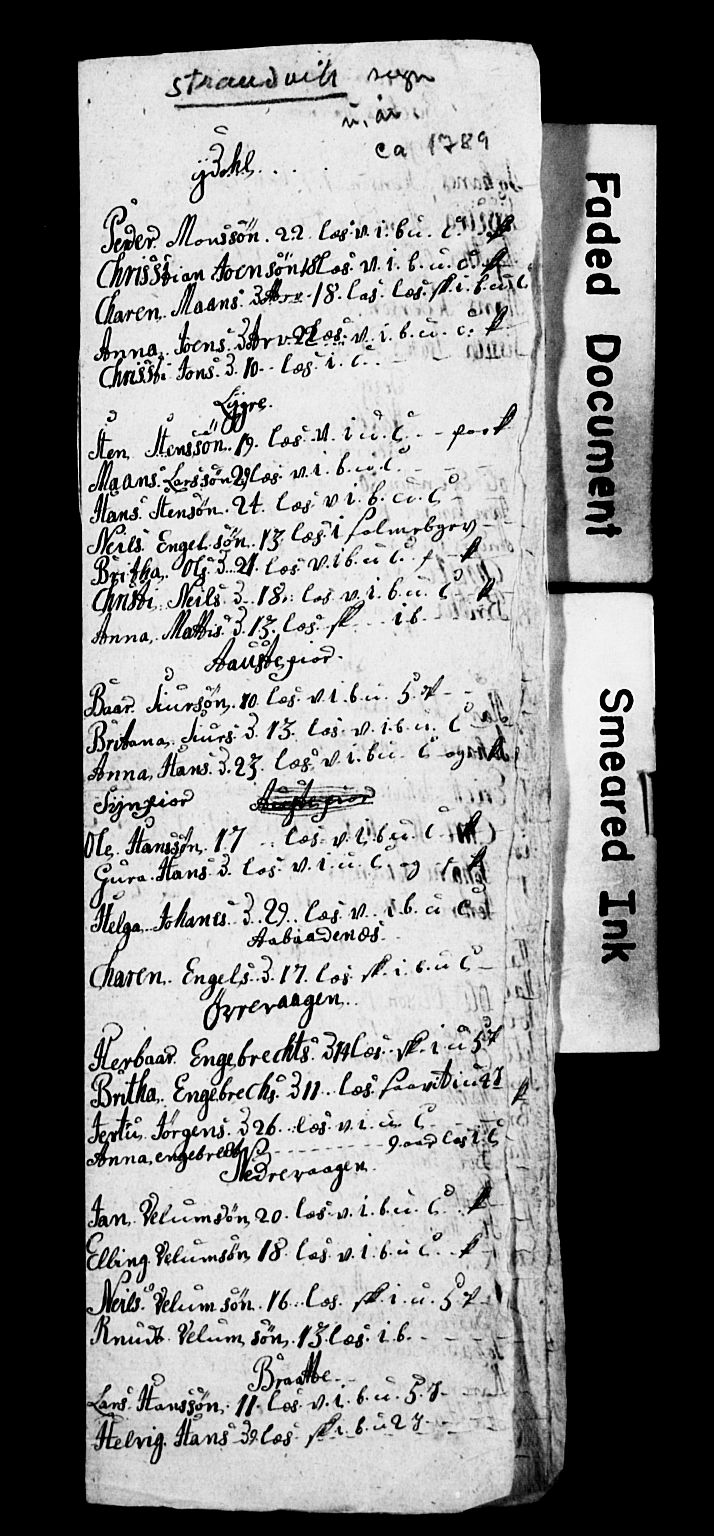 strandvik sogn
u. år.
ca 1789
Peder Monssön. 22. læs. v. i. b. u. C. sk
Chrisstian Joensön 18 læs. v. i. b. u. C. sk
Charen. Maans. D. 18. las. læs. sk. i. b. u. C
Anna. Joens. D. 22 læs. v. i. b. u. C. sk
Chrissti Jons. D. 10. læs. i. C.
Lygre.
Sten Stenssön. 19. læs. v. i u. C.
Maans. Larssön 29 læs. v. i. b. u. C.
Hans. Stensön. 24. læs v i. b. u. C
Neils. Engel. sön. 13 læs i salmebgev
Britha. Ols D. 21. læs v i b. u C. sk
Christi. Neils D. 18. læs v. i. b. u. C sk
Anna. Mattis D. 13. læs. sk. i b.
Aaustegior.
Baar. Siursön. 10 læs. v. i. b. u. 5. P
Britana. Siurs. D. 13. læs. v. i. b. u. C
Anna. Hans. D. 23. læs v. i. b. u. C og sk
Synsior
Ole. Hanssön. 17 læs. v. i. b. u. C. sk
Gura. Hans D. læs. v. i. u. C. og sk
Helga. Johanes D. 29. læs v. i. b. u. C
Aabaadenæs.
Charen. Engels. D. 17. læs sk. i. b. u C
Övrevaagen.
Herbaar. Engebrechts. D 14 læs. sk. i u 5 P
Britha. Engebrechs. D 11. læs.
Jertru Jörgens. D 26. læs. v. i. u. C
Anna. engebrechs D 9 aar læs i. C
Nedrevaagen.
Jan. Velumsön 20. læs. v. i. b. u. C. sk
Elling Velumsön 18. læs v. i. b. u C. sk
Neils. Velum sön. 16. læs. sk. i. u. 5 P
Knud. Velum sön. 13. læs. i b.
Braatte.
Lars. Hanssön. 11. læs v. i. b. u. 5 P
Helvig. Hans D. 9 læs. sk i. b. u 2 P
Faded Document
Smeared Ink